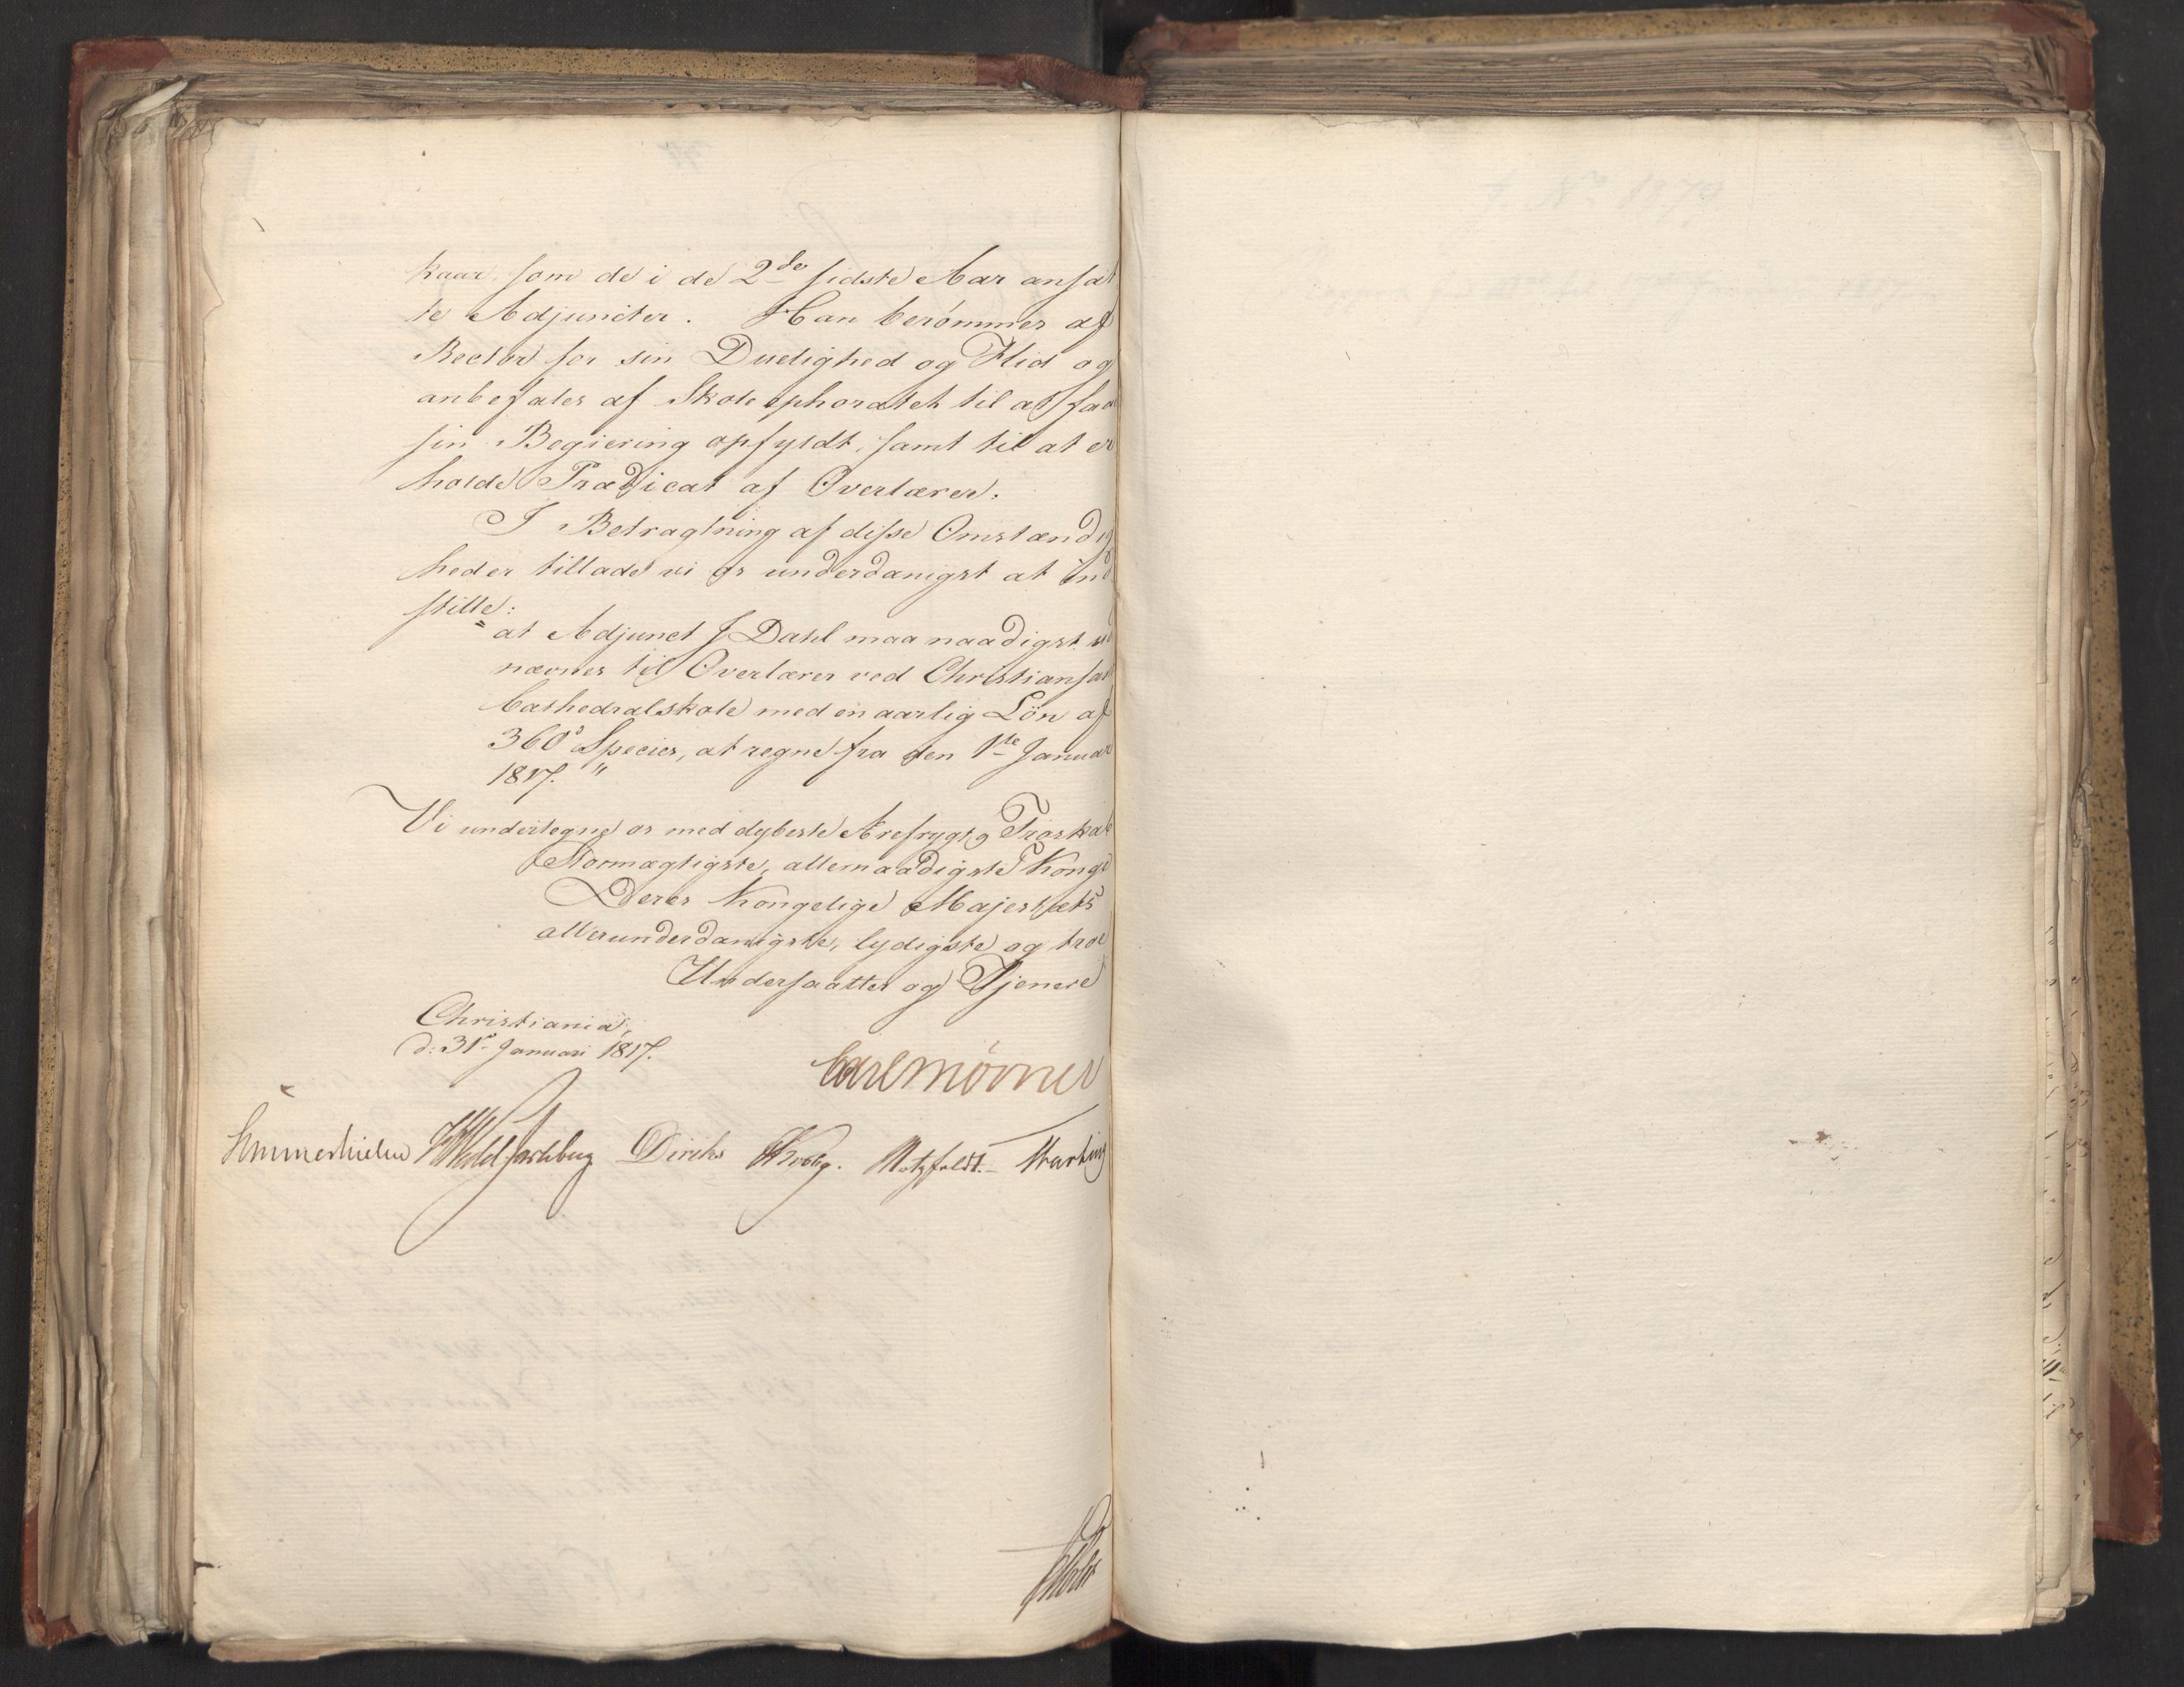 kaar som de i de 2de sidste Aar ansat
te Adjuncter. Han berømmes af
Rector for sin Duelighed og Flid og
anbefales af Skoleephoratet til at faa
sin Begiering opfyldt, samt til at er
holde Prædicat af Overlærer.
I Betragtning af disse Omstændig
heder tillade vi os underdanigst at ind
stille:
at Adjunct J Dahl maa naadigst ud
nævnes til Overlærer ved Christiansand
Cathedralskole med en aarlig Lön af
360 Species, at regne fra den 1ste Januar
1817. "
Vi undertegne os med dybeste Ærefrygt og Troskab
Stormægtigste, allernaadigste Konge
Deres Kongelige Majestæts
allerunderdanigste, lydigste og troe
Undersaatter og Tjenere
Christiania,
d: 31 Januari 1817.
Carl Mörner
Sommerhielm Wedel Jarlsberg Diriks Krog. Motzfeldt. Mart
Holst